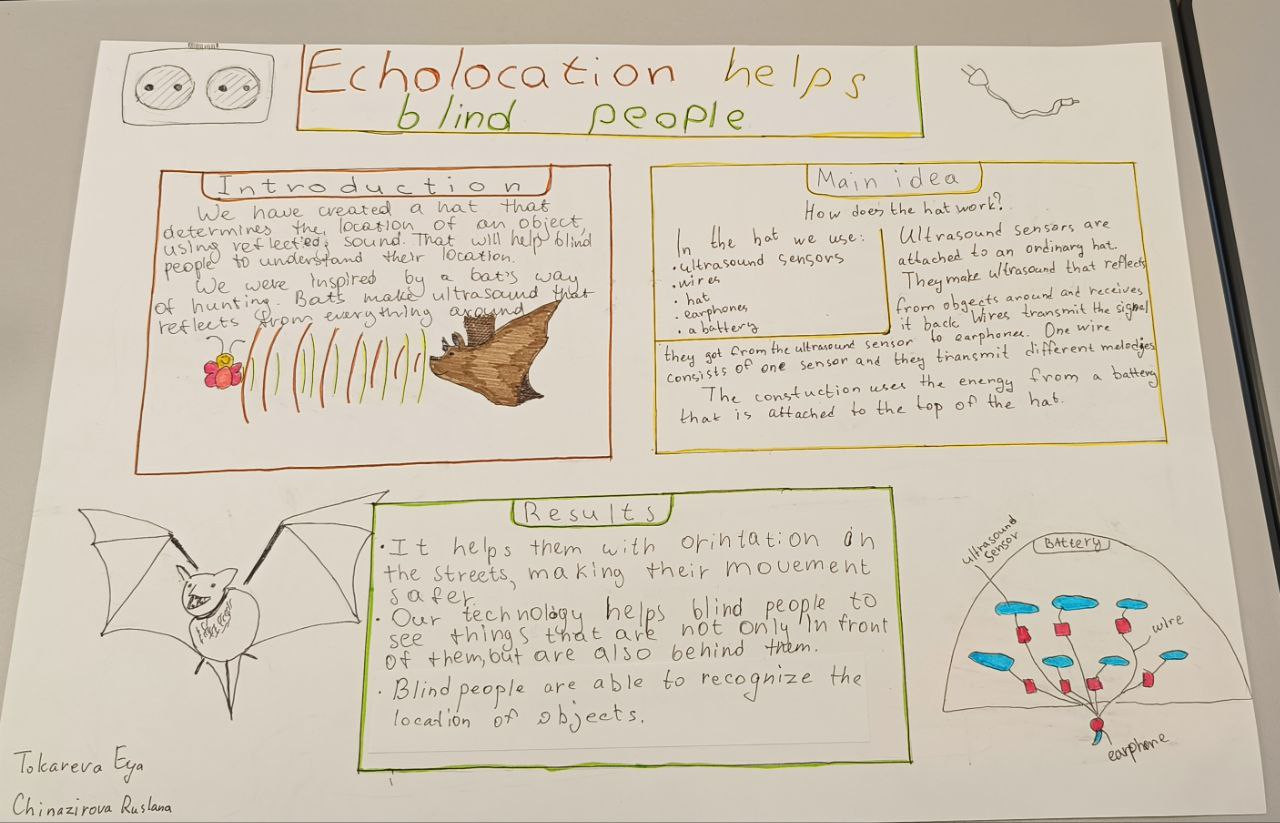 Echolocation helps
blind people
Introduction
We have created a hat that
determines the location of an object,
using reflected sound. That will help blind
people to understand their location.
We were inspired by a bat's way
of hunting. Bats make ultrasound that
reflects from everything around
Main idea
How does the hat work?
In the hat we use:
• ultrasound sensors
• wires
• hat
• earphones
• a battery
Ultrasound sensors are
attached to an ordinary hat.
They make ultrasound that reflects
from obgects around and receives
it back. Wires transmit the signal
they got from the ultrasound sensor to earphones. One wire
consists of one sensor and they transmit different melodies
The constuction uses the energy from a battery
that is attached to the top of the hat.
Results
• It helps them with orintation in
the streets, making their movement
safer.
• Our technology helps blind people to
see things that are not only in front
of them, but are also behind them.
• Blind people are able to recognize the
location of objects.
ultrasound
sensor
BAttery
wire
earphone
Tokareva Eya
Chinazirova Ruslana